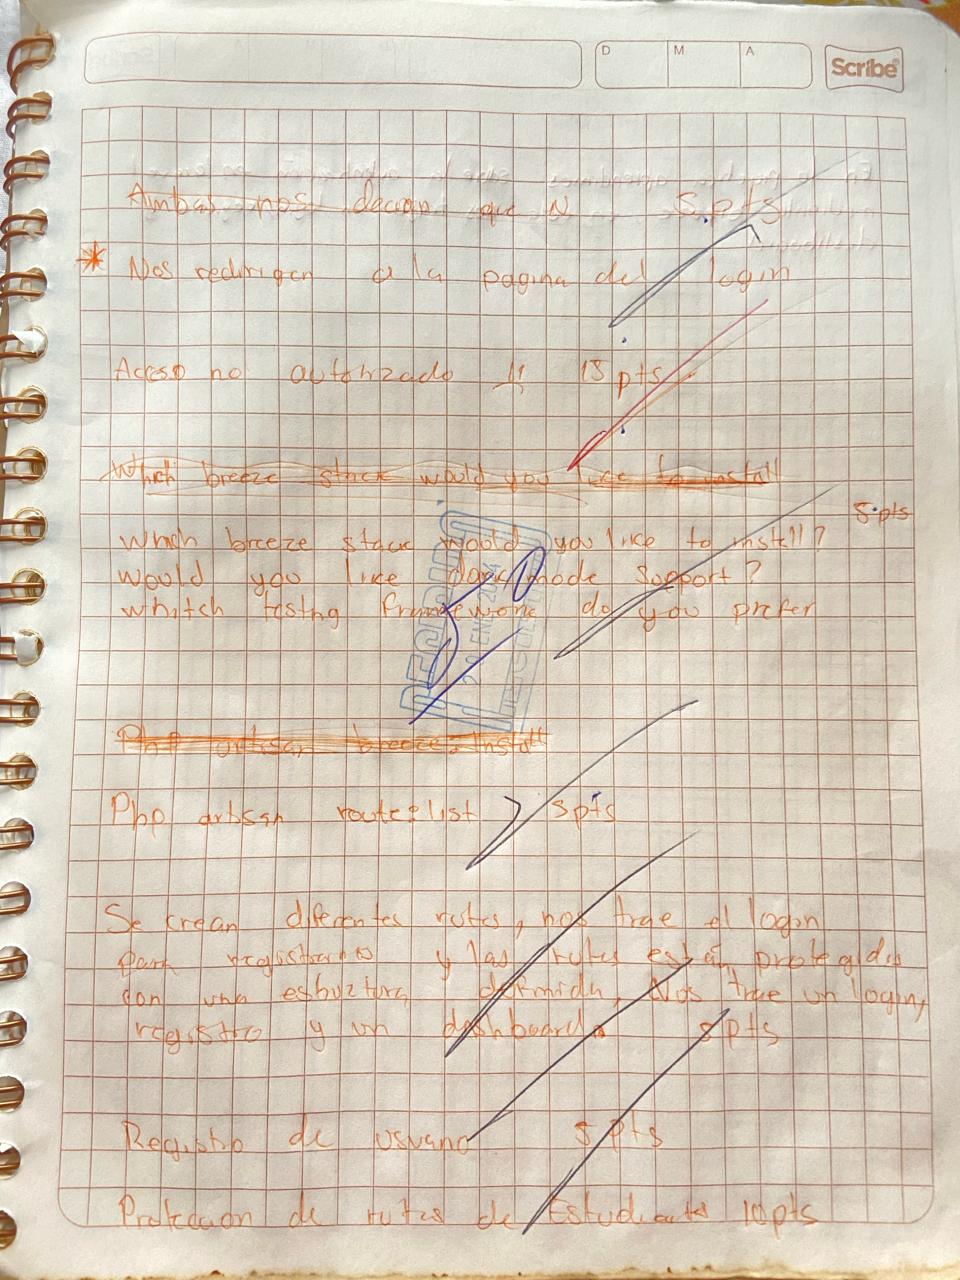 D M A
Scribe
Ambas nos decian que N 5.pts
* Nos redirigen a la pagina del login
Acceso no autorizado 15 pts
Which breeze stack would you like to install
5.pts
Which breeze stack would you like to install?
would you like dark mode support?
whitch testng framework do you prefer
REVISADO
ENE 2024
Php artisan breeze:install
Php artisan route:list 5pts
Se crean diferentes rutas, nos trae el login
para registrarno y las rutas están protegidas
con una estructura definida, Nos trae un login,
registro y un dashboard. 5pts
Registro de usuario 5 pts
Proteccion de rutas de Estudiantes 10pts